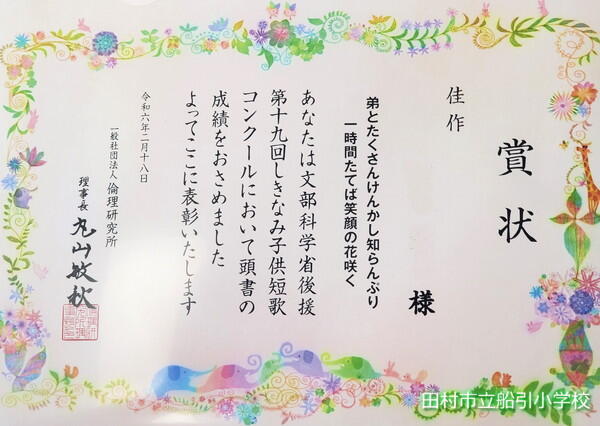 賞状
佳作
弟とたくさんけんかし知らんぷり
一時間たてば笑顔の花咲く
様
あなたは文部科学省後援
第十九回しきなみ子供短歌
コンクールにおいて頭書の
成績をおさめました
よってここに表彰いたします
令和六年二月十八日
一般社団法人 倫理研究所
理事長 丸山敏秋
田村市立船引小学校